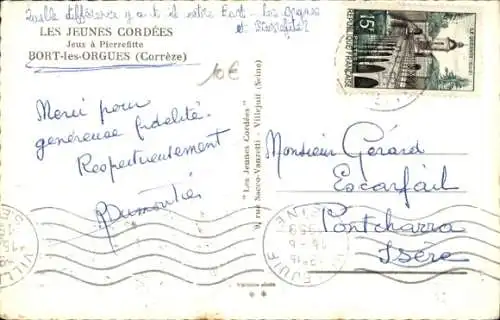 Quelle différence y a t il entre Bort - les Orgues
et Pierrefitte?
LES JEUNES CORDÉES
Jeux à Pierrefitte
BORT-les-ORGUES (Corrèze)
10€
15F
REPUBLIQUE FRANÇAISE
Merci pour
généreuse fidélité.
Respectueusement
"Les Jeunes Cordées"
9, rue Sacco-Vanzetti - Villejuif (Seine)
Monsieur Gérard
Escarfail
Pontcharra
Isère
VILLEJUIF
SEINE